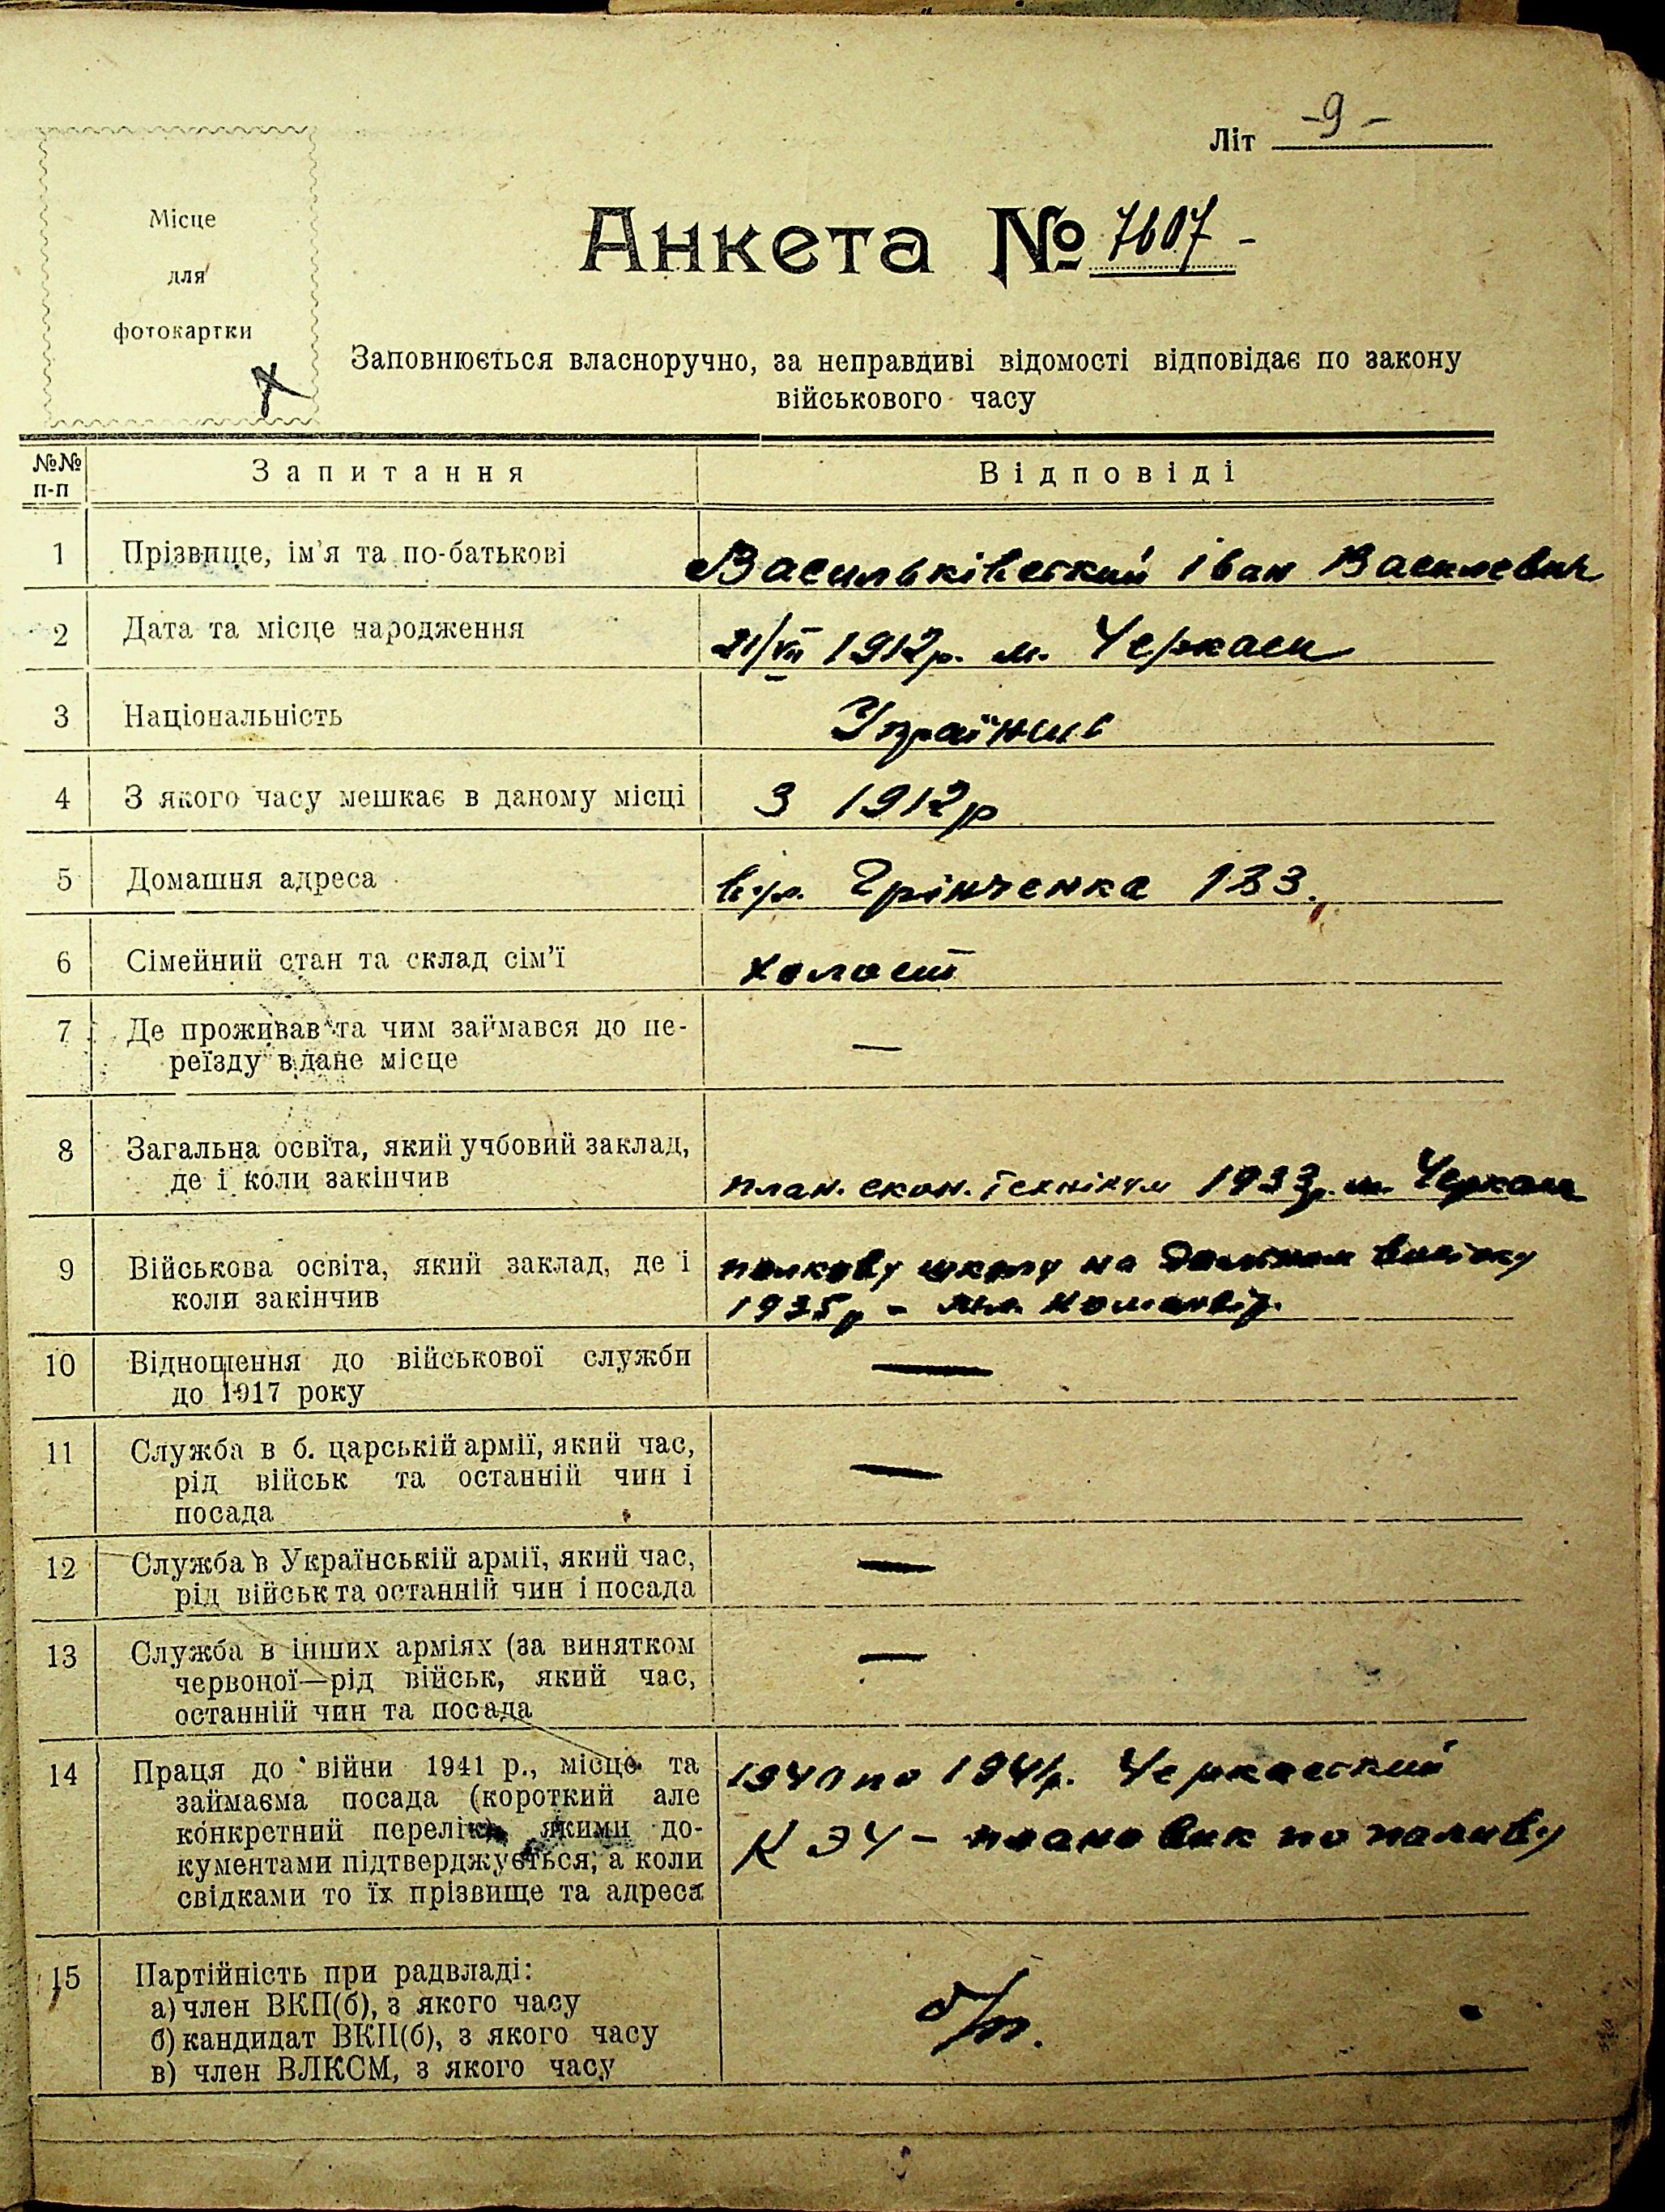 Літ -9-
Місце
для
фотокартки
Анкета № 7607 -
Заповнюється власноручно, за неправдиві відомості відповідає по закону
військового часу
№№ п-п Запитання Відповіді
1 Прізвище, ім'я та по-батькові Васильківский Іван Василевич
2 Дата та місце народження 21/VII 1912р. м. Черкаси
3 Національність Українець
4 З якого часу мешкає в даному місці З 1912р
5 Домашня адреса вул. Грінченка 133.
6 Сімейний стан та склад сім'ї холост
7 Де проживав та чим займався до пе- —
реїзду в дане місце
8 Загальна освіта, який учбовий заклад,
де і коли закінчив план. екон. технікум 1933р. м. Черкаси
9 Військова освіта, який заклад, де і полкову школу на
коли закінчив 1935р - мл. командір.
10 Відношення до військової служби —
до 1917 року
11 Служба в б. царській армії, який час,
рід військ та останній чин і —
посада
12 Служба в Українській армії, який час, —
рід військ та останній чин і посада
13 Служба в інших арміях (за винятком —
червоної—рід військ, який час,
останній чин та посада
14 Праця до війни 1941 р., місце та 1940 по 1941р. Черкаский
займаєма посада (короткий але
конкретний перелік) якими до- КЭЧ - плановик по паливу
кументами підтверджується, а коли
свідками то їх прізвище та адреса
15 Партійність при радвладі:
а) член ВКП(б), з якого часу б/п.
б) кандидат ВКП(б), з якого часу
в) член ВЛКСМ, з якого часу